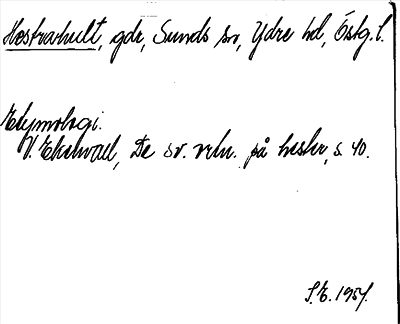 Hestrahult, gdr, Sunds sn, Ydre hd, Östg. l.
Etymologi.
V. Ekenvall, De sv. ortn. på hester, s. 40.
S.E. 1957.